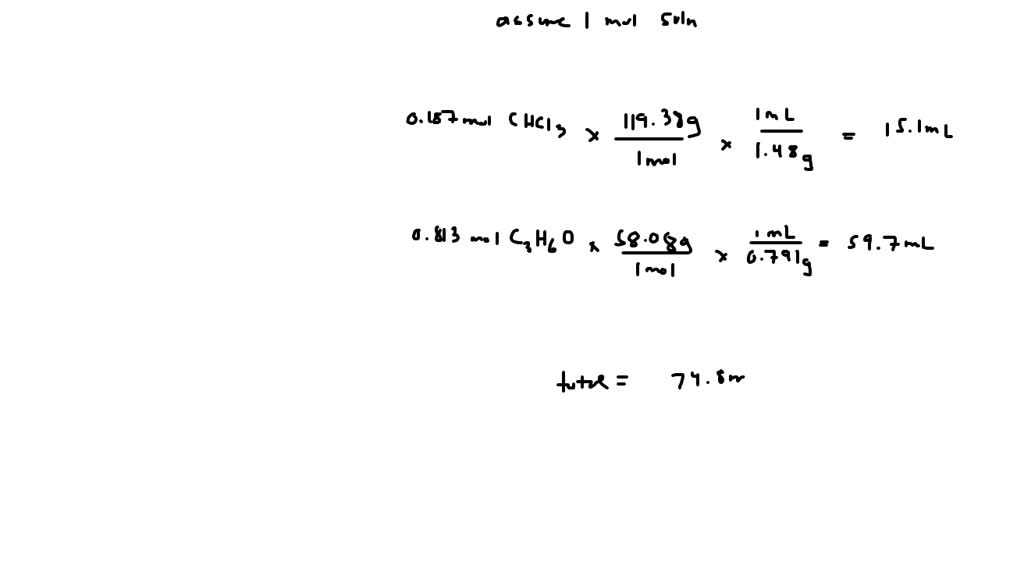 assume 1 mol soln
0.187 mol CHCl₃ × 119.38g / 1mol × 1mL / 1.48g = 15.1mL
0.813 mol C₃H₆O × 58.08g / 1mol × 1mL / 0.791g = 59.7mL
total = 74.8m